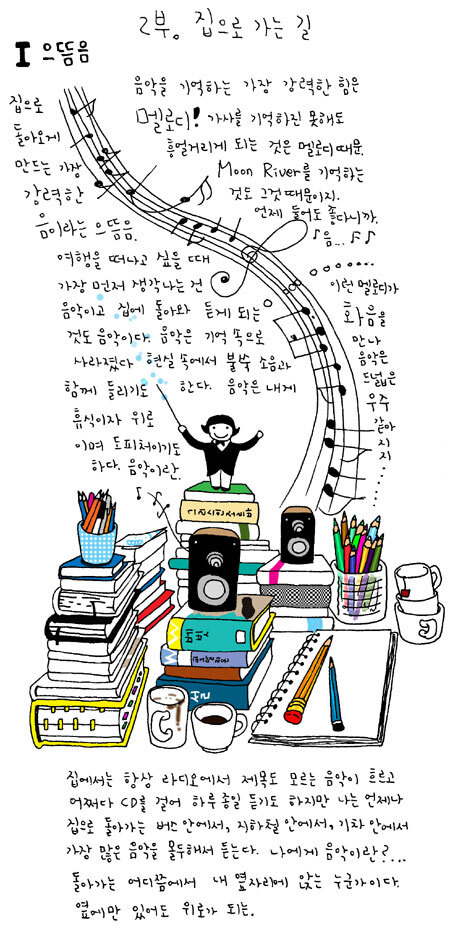 2부。 집으로 가는 길
I 으뜸음
집으로
돌아오게
만드는 가장
강력한
음이라는 으뜸음.
음악을 기억하는 가장 강력한 힘은
멜로디! 가사를 기억하진 못해도
흥얼거리게 되는 것은 멜로디때문.
Moon River를 기억하는
것도 그것 때문이지.
언제 들어도 좋다니까.
♪음... ♪♪
여행을 떠나고 싶을 때
가장 먼저 생각나는 건
음악이고 집에 돌아와 듣게 되는
것도 음악이다. 음악은 기억 속으로
사라졌다 현실 속에서 불쑥 소음과
함께 들리기도 한다. 음악은 내게
휴식이자 위로
이며 도피처이기도
하다. 음악이란.
이런 멜로디가
화음을
만나
음악은
드넓은
우주
같아
지
지
집에서는 항상 라디오에서 제목도 모르는 음악이 흐르고
어쩌다 CD를 걸어 하루종일 듣기도 하지만 나는 언제나
집으로 돌아가는 버스 안에서, 지하철 안에서, 기차 안에서
가장 많은 음악을 몰두해서 듣는다. 나에게 음악이란?...
돌아가는 어디쯤에서 내 옆자리에 앉는 누군가이다.
옆에만 있어도 위로가 되는.